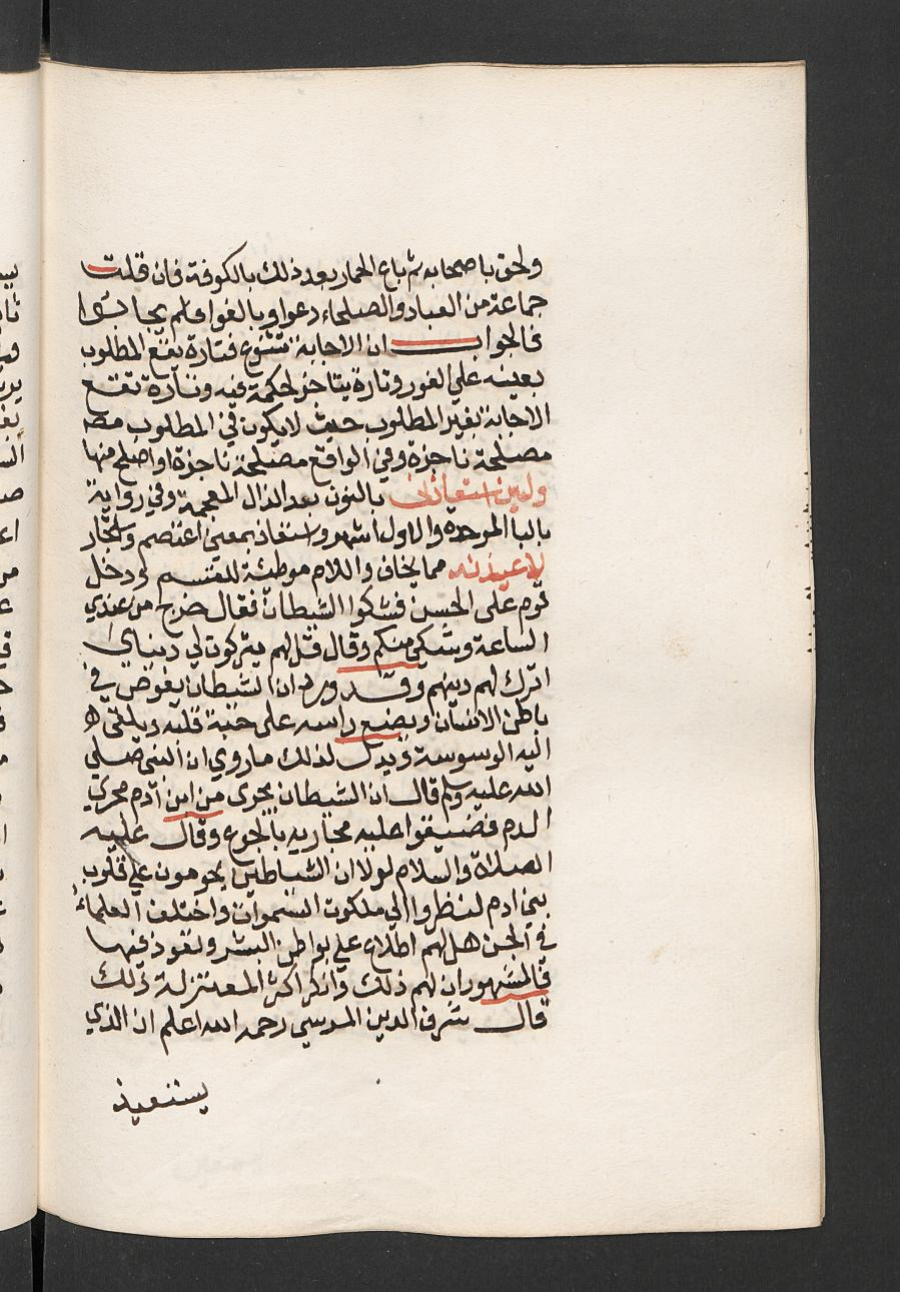 ولحق باصحابه ثم باع الحمار بعد ذلك بالكوفة فان قلت
جماعة من العباد والصلحاء دعوا وبالغوا فلم يجابوا
فالجواب ان الاجابة تتنوع فتارة يقع المطلوب
بعينه علي الفور وتارة يتاخر لحكمة فيه وتارة تقع
الاجابة بغير المطلوب حيث لا يكون في المطلوب مصـ
مصلحة ناجزة وفي الواقع مصلحة ناجزة او اصلح منها
ولين استعاذني بالنون بعد الذال المعجمة وفي رواية
بالبا الموحدة والاول اشهر واستعاذ بمعني اعتصم واستجار
لاعيذنه مما يخاف واللام موطئة للقسم ودخل
قوم على الحسن فشكوا الشيطان فقال خرج من عندي
الساعة وشكى منكم وقال قل لهم يتركوت لي دنياي
اترك لهم دينهم وقد ورد ان الشيطان يغوص في
باطن الانسان ويضع راسه على حبة قلبه ويلقي
اليه الوسوسة ويدل لذلك ما روي ان النبي صلي
الله عليه وسلم قال ان الشيطان يجرى من ابن آدم مجري
الدم فضيقوا عليه مجاريه بالجوع وقال عليه
الصلاة والسلام لولا ان الشياطين يحومون علي قلوب
بني ادم لنظروا الي ملكوت السموات واختلف العلماء
في الجن هل لهم اطلاع علي بواطن البشر ونفوذ فيها
فالمشهور ان لهم ذلك وانكر اكثر المعتزلة ذلك
قال شرف الدين المرسي رحمه الله اعلم ان الذي
يستعيذ